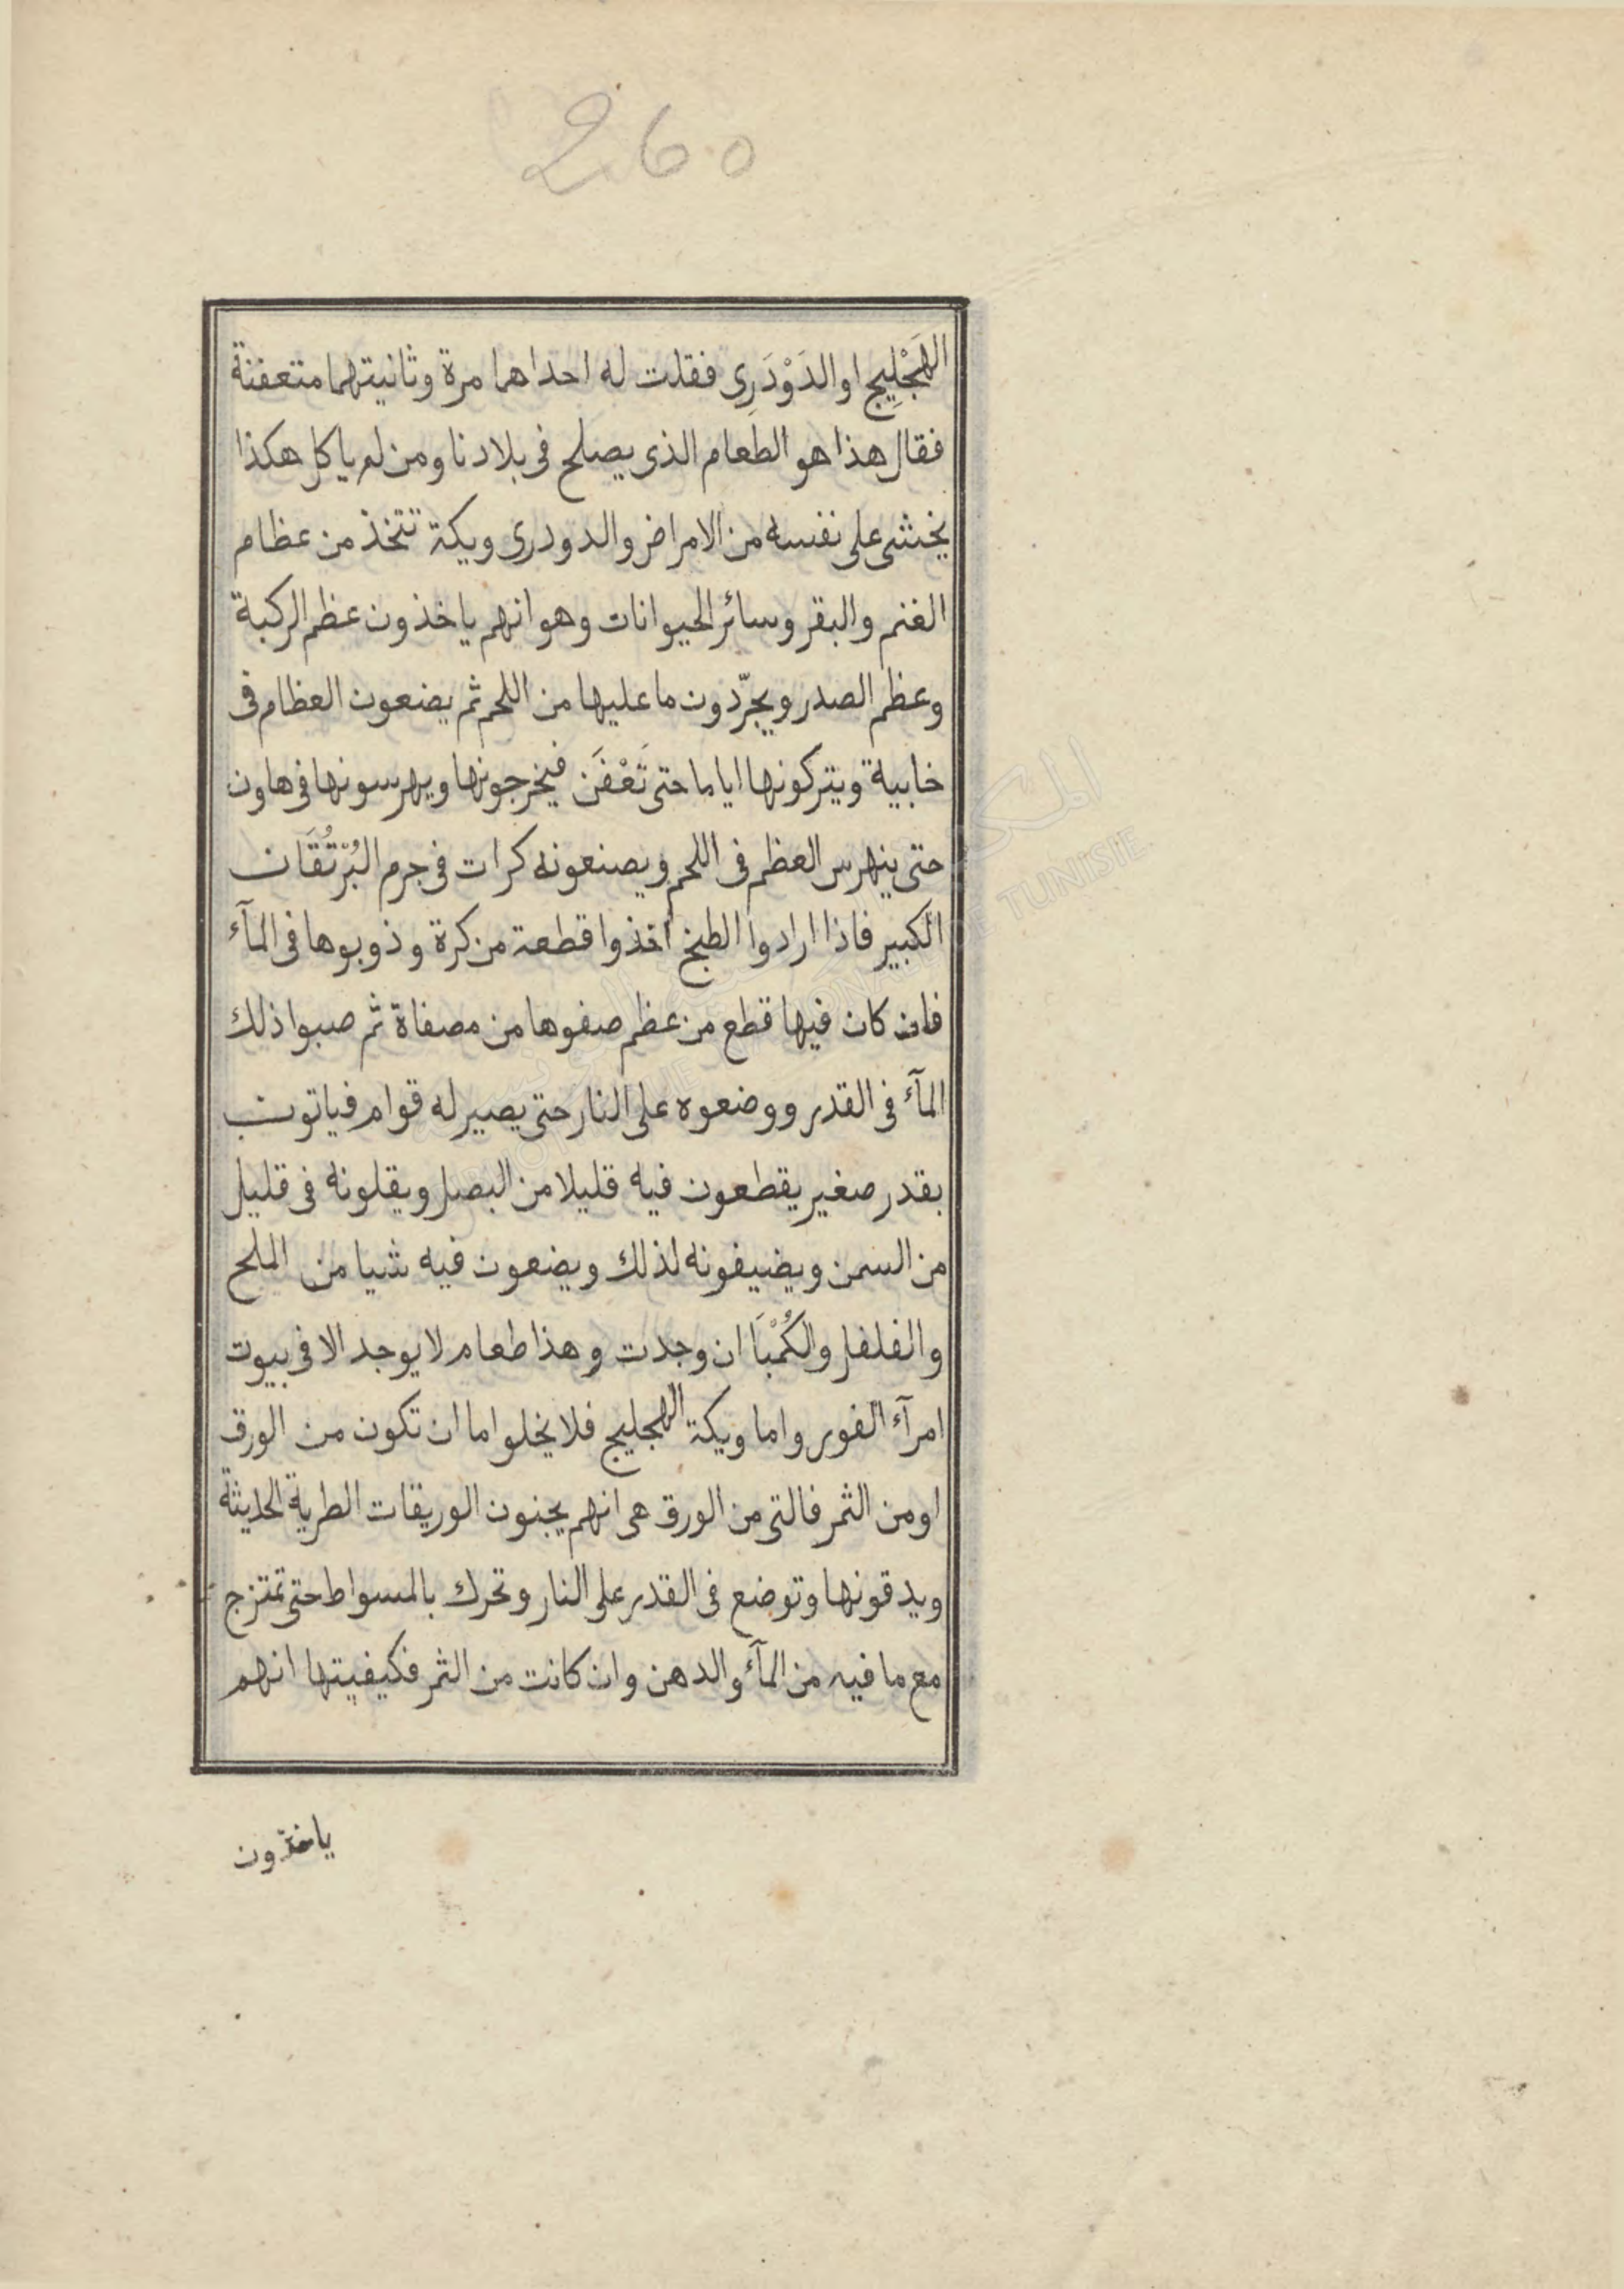 260
الهَجْلِيج او الدَوْدَرِى فقلت له احداهما مرة وثانيتهما متعفنة
فقال هذا هو الطعام الذى يصلح فى بلادنا ومن لم ياكل هكذا
يخشى على نفسه من الامراض والدودرى ويكة تتخذ من عظام
الغنم والبقر وسائر الحيوانات وهو انهم ياخذون عظم الركبة
وعظم الصدر ويجرّدون ما عليها من اللحم ثم يضعون العظام فى
خابية ويتركونها اياما حتى تَعْفَن فيخرجونها ويهرسونها فى هاون
حتى ينهرس العظم فى اللحم ويصنعونه كرات فى جرم البُرْتُقَان
الكبير فاذا ارادوا الطبخ اخذوا قطعة من كرة وذوبوها فى المآء
فان كان فيها قطع من عظم صفوها من مصفاة ثم صبوا ذلك
المآء فى القدر ووضعوه على النار حتى يصير له قوام فياتون
بقدر صغير يقطعون فيه قليلا من البصل ويقلونه فى قليل
من السمن ويضيفونه لذلك ويضعون فيه شيا من الملح
والفلفل والكُمْبَا ان وجدت وهذا طعام لا يوجد الا فى بيوت
امرآء الفور واما ويكة الهجليج فلا يخلوا اما ان تكون من الورق
او من الثمر فالتى من الورق هى انهم يجنون الوريقات الطرية الحديثة
ويدقونها وتوضع فى القدر على النار وتحرك بالمسواط حتى تمتزج
مع ما فيه من المآء والدهن وان كانت من الثمر فكيفيتها انهم
ياخذون